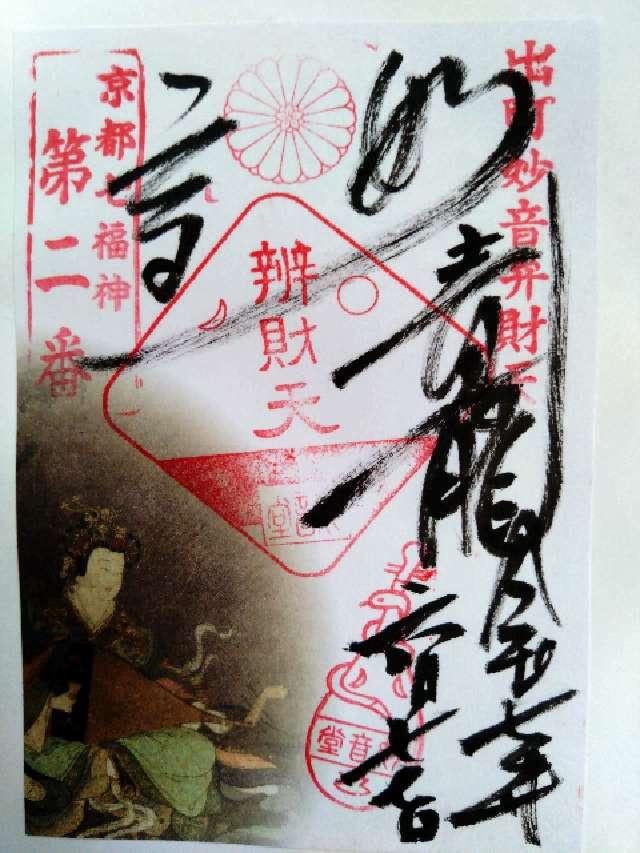 出町妙音弁財天
青龍
七年
六月七日
辨財天
妙音堂
妙音堂
京都七福神
第二番